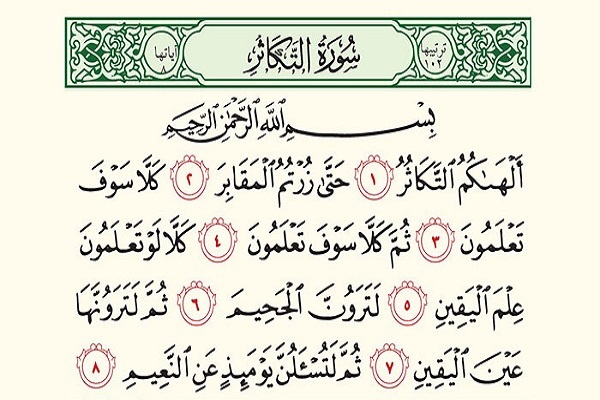 ترتيبها ١٠٢ سُورَةُ التَّكَاثُرِ آياتها ٨
بِسْمِ اللَّهِ الرَّحْمَٰنِ الرَّحِيمِ
أَلْهَىٰكُمُ ٱلتَّكَاثُرُ ١ حَتَّىٰ زُرْتُمُ ٱلْمَقَابِرَ ٢ كَلَّا سَوْفَ
تَعْلَمُونَ ٣ ثُمَّ كَلَّا سَوْفَ تَعْلَمُونَ ٤ كَلَّا لَوْ تَعْلَمُونَ
عِلْمَ ٱلْيَقِينِ ٥ لَتَرَوُنَّ ٱلْجَحِيمَ ٦ ثُمَّ لَتَرَوُنَّهَا
عَيْنَ ٱلْيَقِينِ ٧ ثُمَّ لَتُسْـَٔلُنَّ يَوْمَئِذٍ عَنِ ٱلنَّعِيمِ ٨